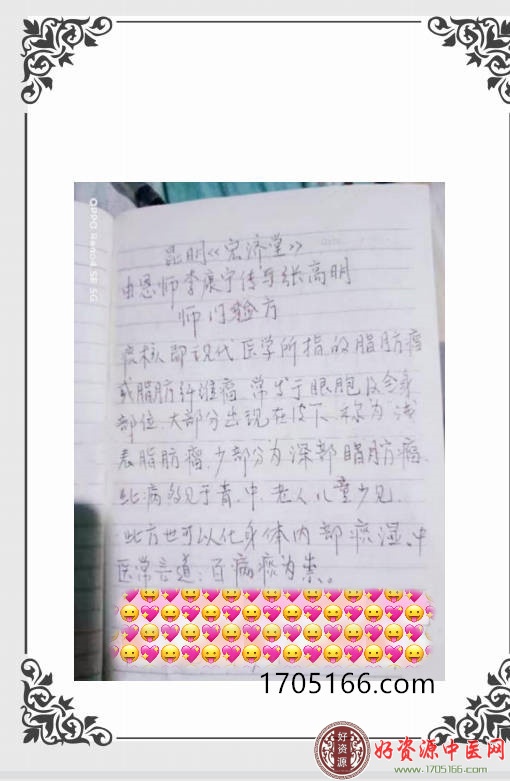 OPPO Reno4 SE 5G
昆明《宏济堂》
由恩师李康宁传与张高明
师门验方
痰核即现代医学所指的脂肪瘤
或脂肪纤维瘤.常发于眼胞及全身
部位.大部分出现在皮下.称为浅
表脂肪瘤.少部分为深部脂肪瘤.
此病多见于青.中.老人.儿童少见.
此方也可以化身体内部痰湿.中
医常言道:百病痰为祟。
1705166.com
好资源
好资源中医网
www.1705166.com